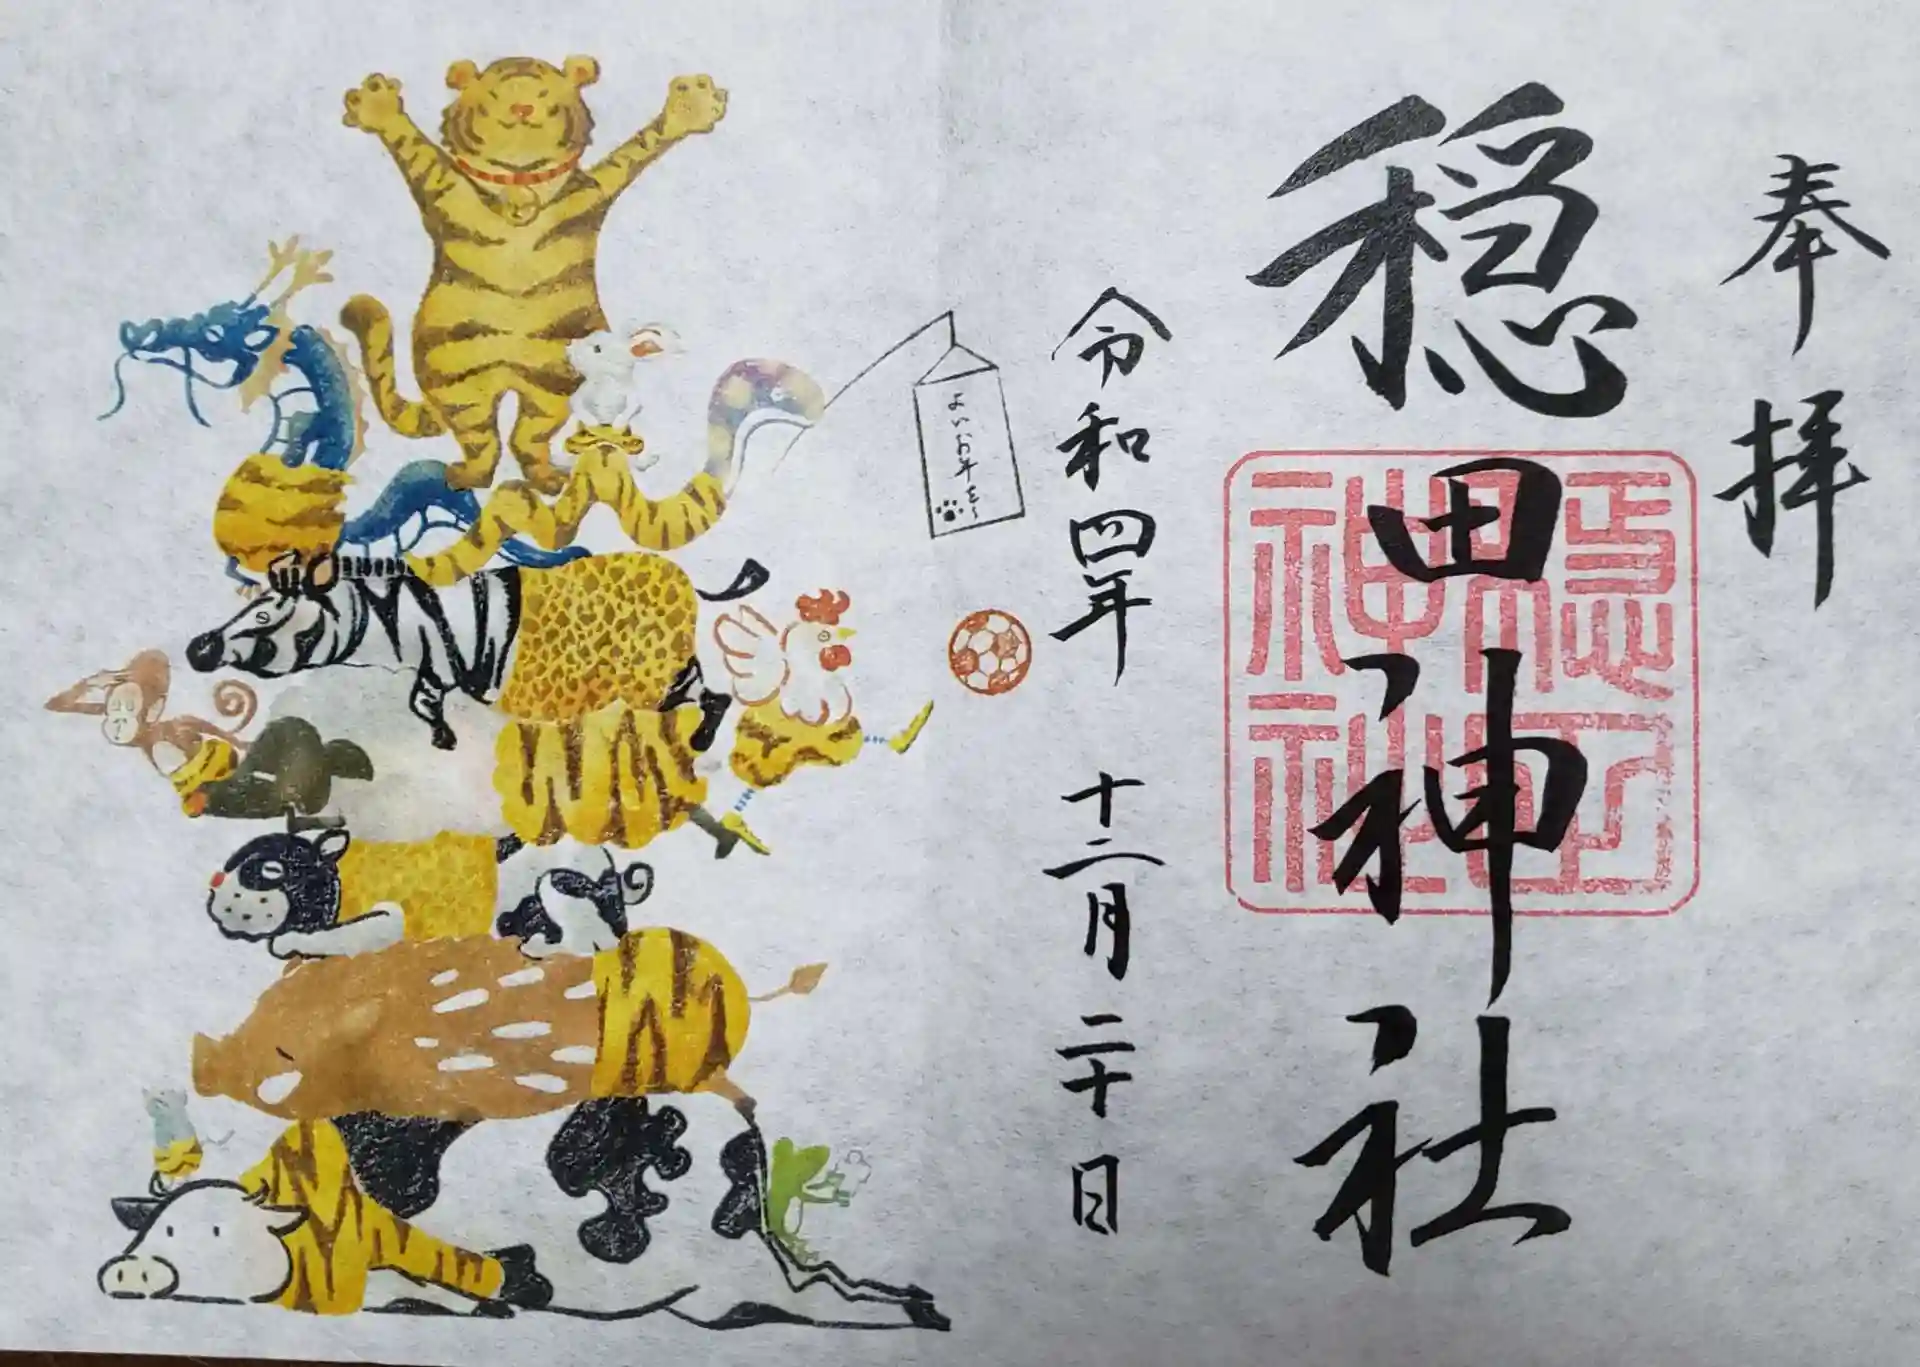 奉拝
穏田神社
穏田
神社
令和四年 十二月 二十日
よいお年を〜